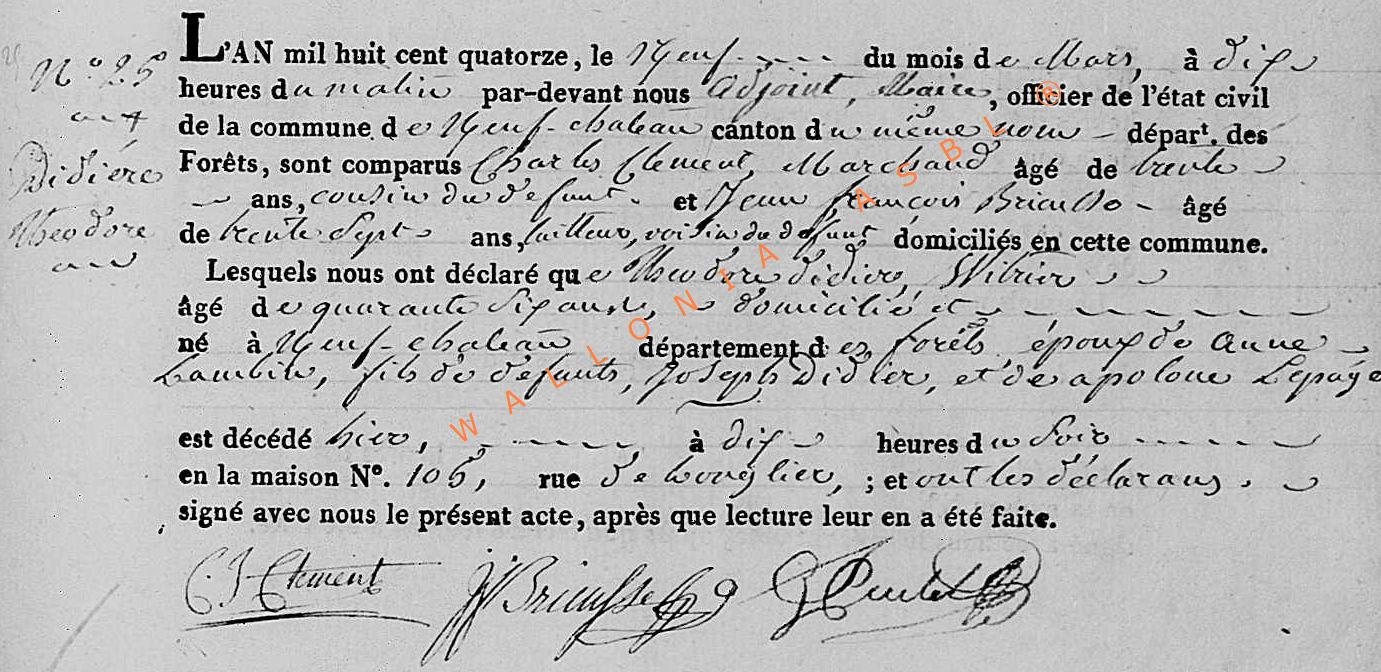 L'AN mil huit cent quatorze, le Neuf du mois de Mars, à dix
N.o 25
heures du matin par-devant nous Adjoint, Maire, officier de l'état civil
de la commune de Neuf-chateau canton du même nom – départ.t des
Didière
Forêts, sont comparus Charles Clement, Marchand âgé de trente
ans, cousin du defunt. et Jean françois Brieusse – âgé
Theodore
de trente Sept ans, tailleur, voisin du defunt domiciliés en cette commune.
Lesquels nous ont déclaré que Theodore didier, Vitrier
âgé de quarante Six ans, domicilié et
né à Neuf-chateau département des forêts, époux de Anne
Lambin, fils de defunts, Joseph Didier, et de apolone Lepage
est décédé hier, à dix heures du Soir
en la maison N.o 106, rue de ; et ont les déclarans
signé avec nous le présent acte, après que lecture leur en a été faite.
C J Clement JF Brieusse
WALLONIA ASBL ©